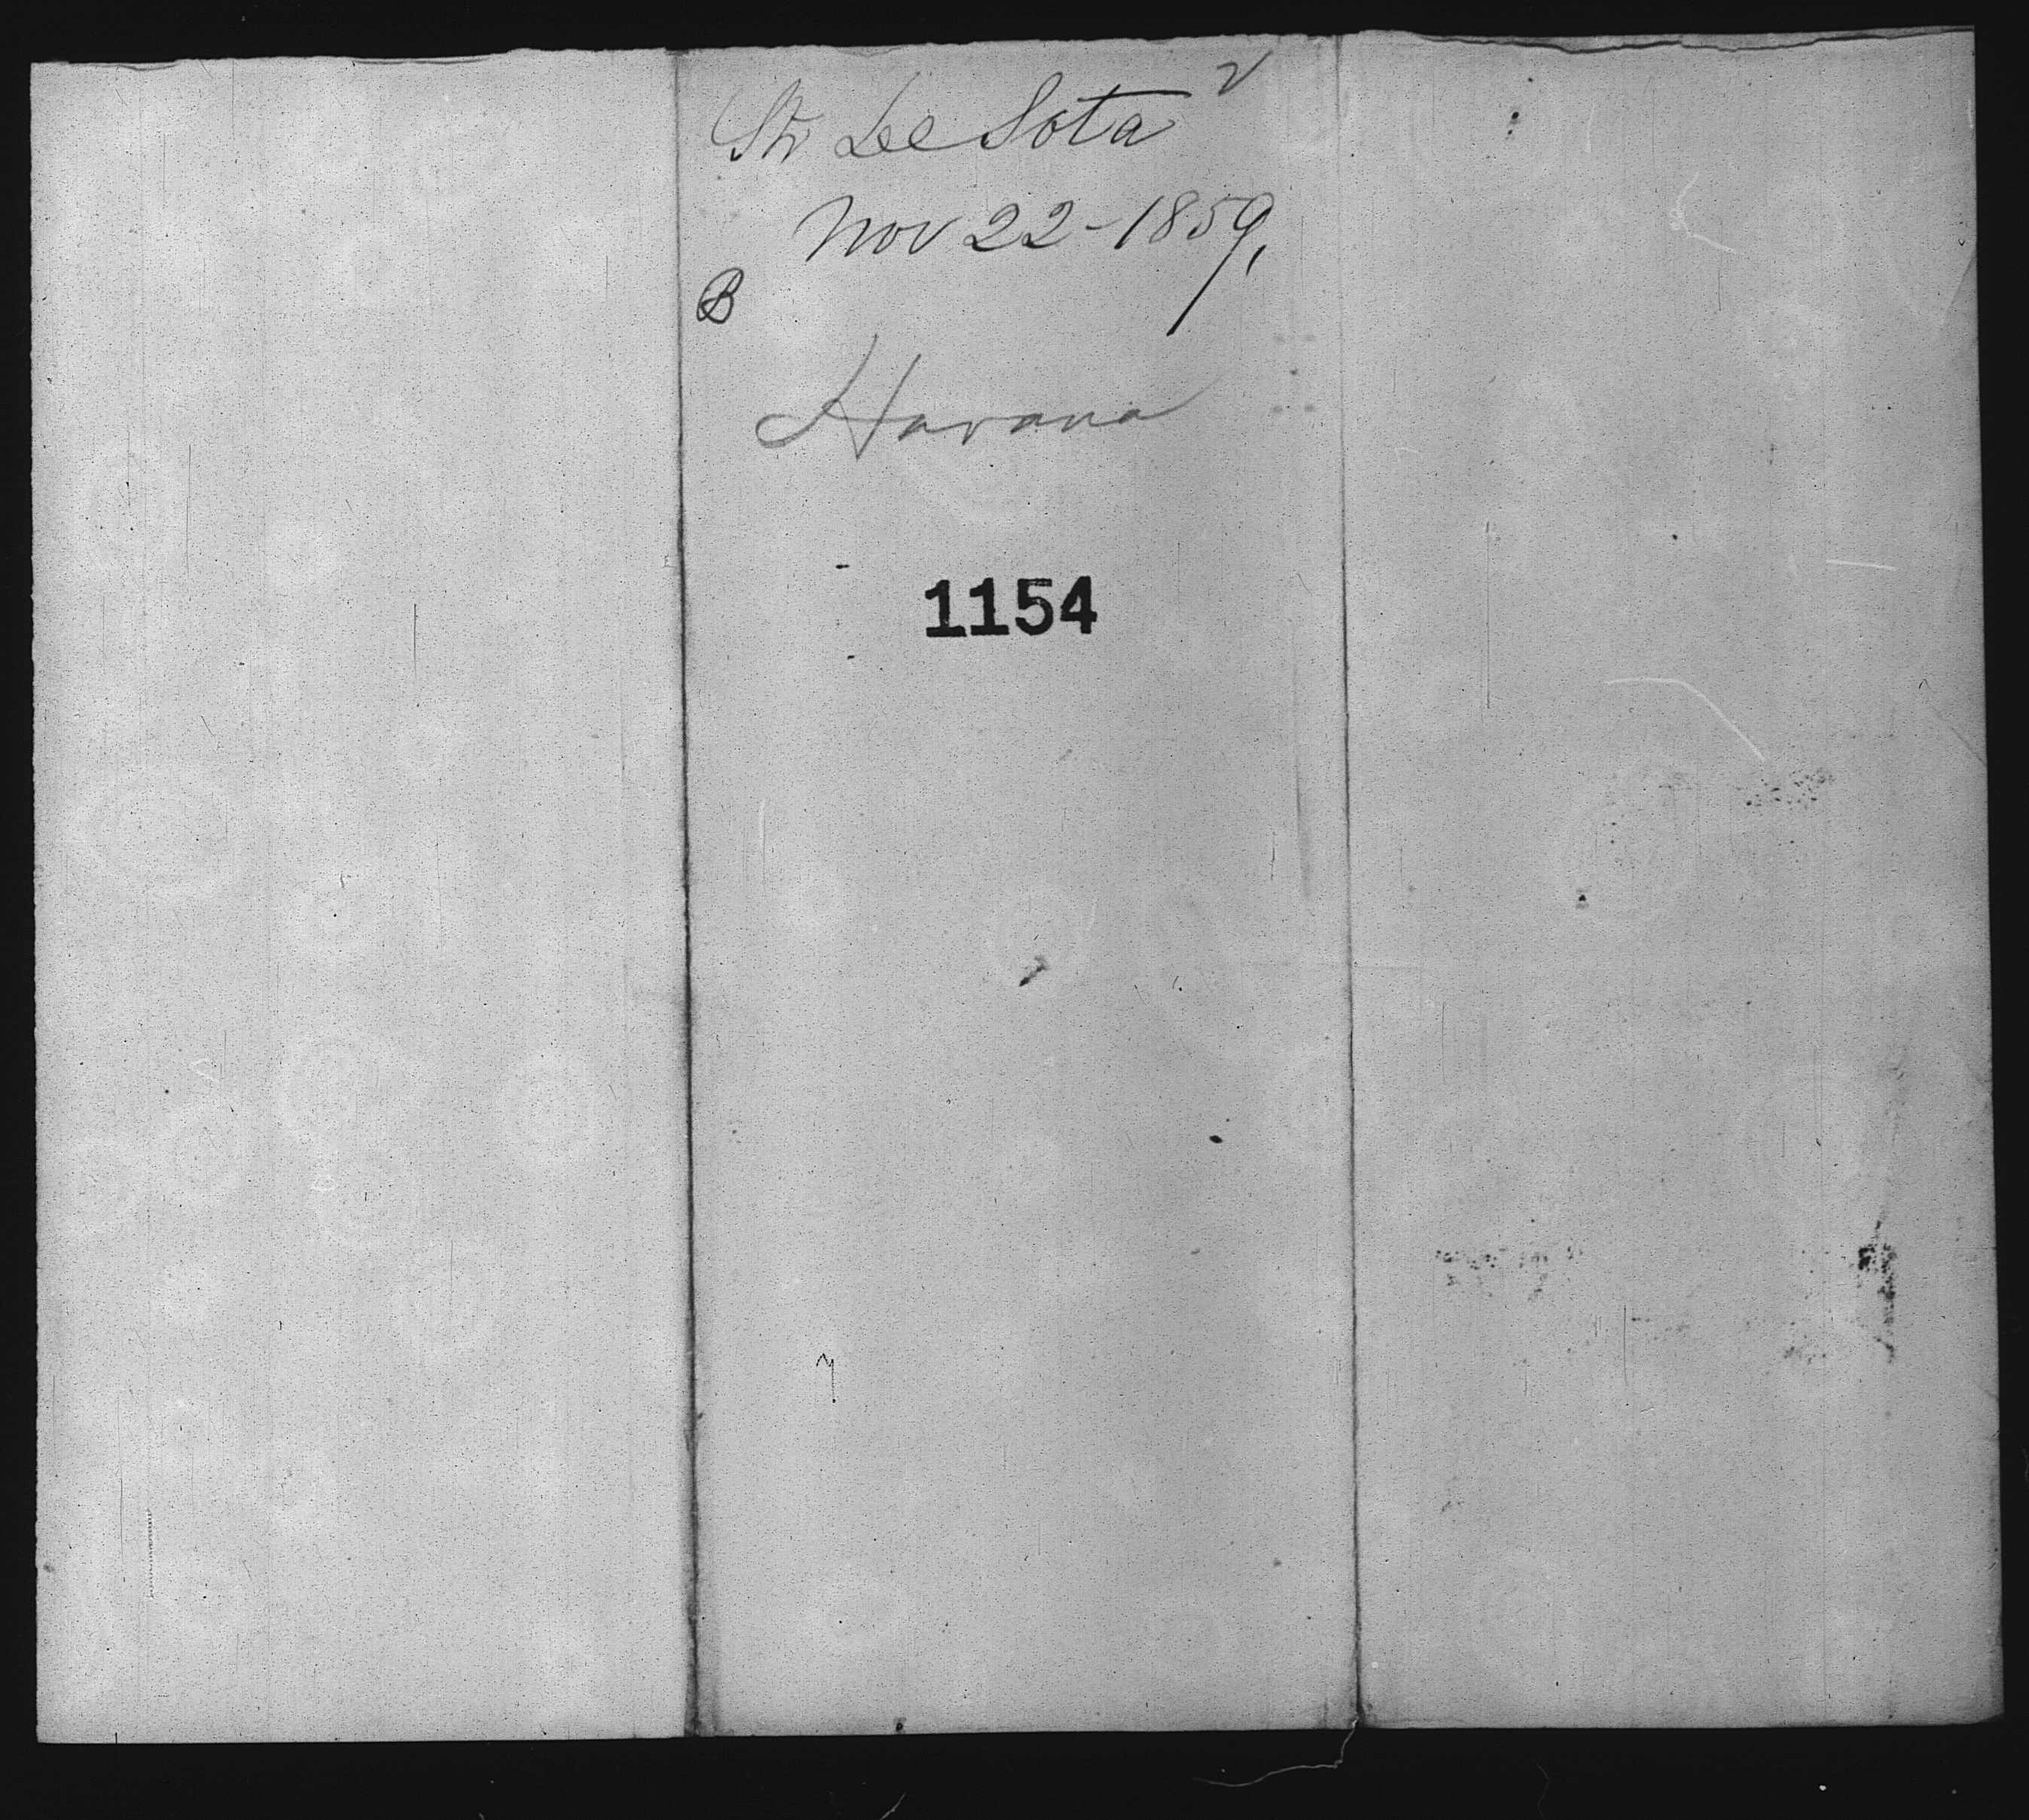 Str De Sota
Nov 22 - 1859,
B
Havana
1154